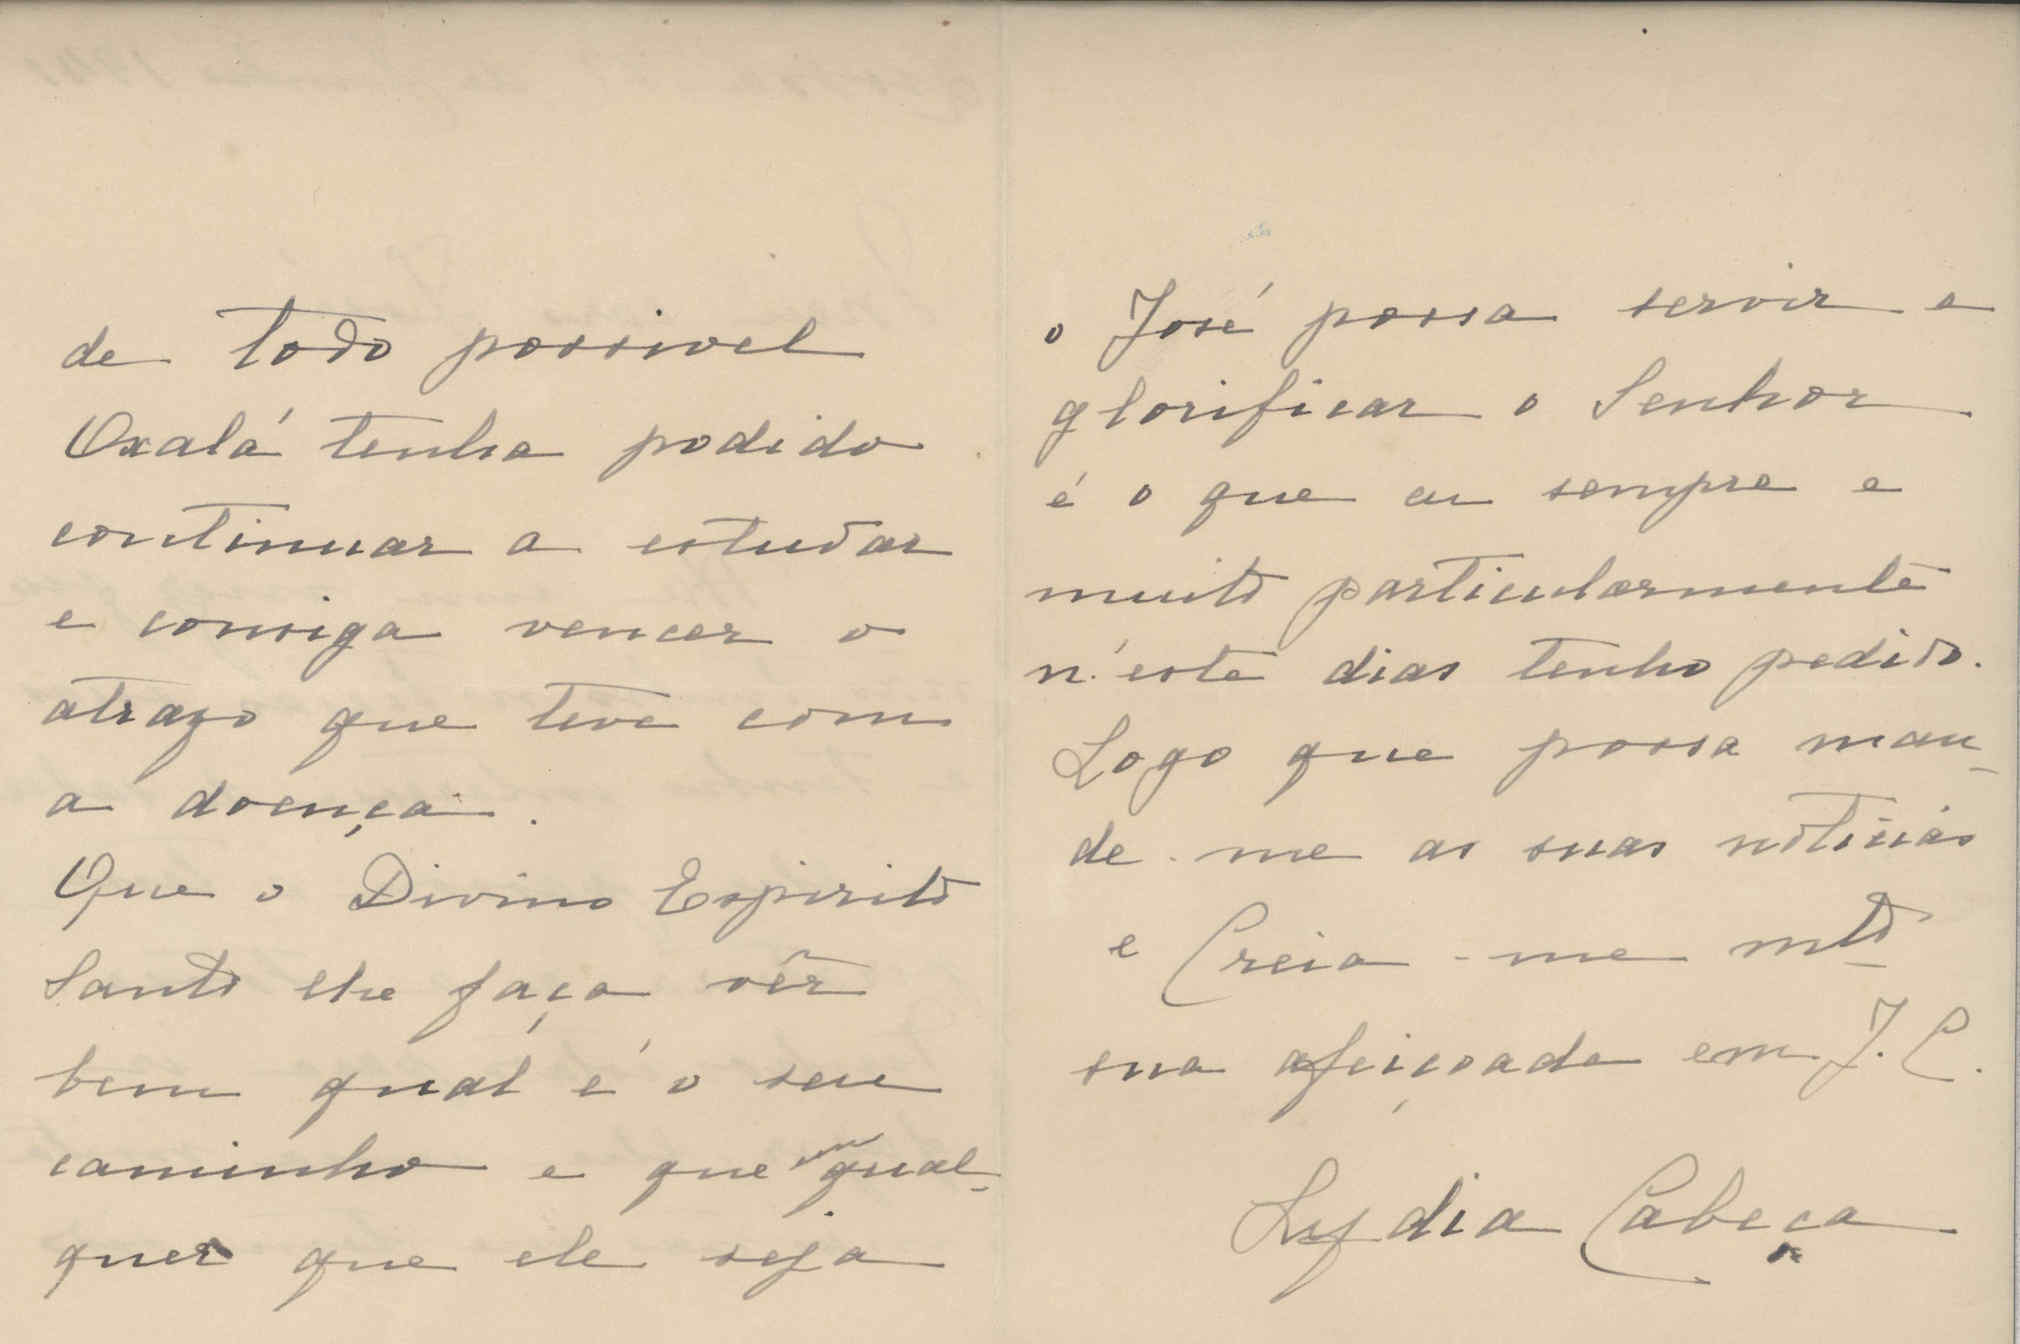 de todo possivel
Oxalá tenha podido
continuar a estudar
e consiga vencer o
atrazo que teve com
a doença.
Que o Divino Espirito
Santo lhe faça vêr
bem qual é o seu
caminho e que em qual-
quer que ele seja
o José possa servir e
glorificar o Senhor
é o que eu sempre e
muito particularmente
n'este dias tenho pedido.
Logo que possa man-
de-me as suas noticias
e Creia-me mto
sua afeiçoada em J. C.
Lydia Cabeça